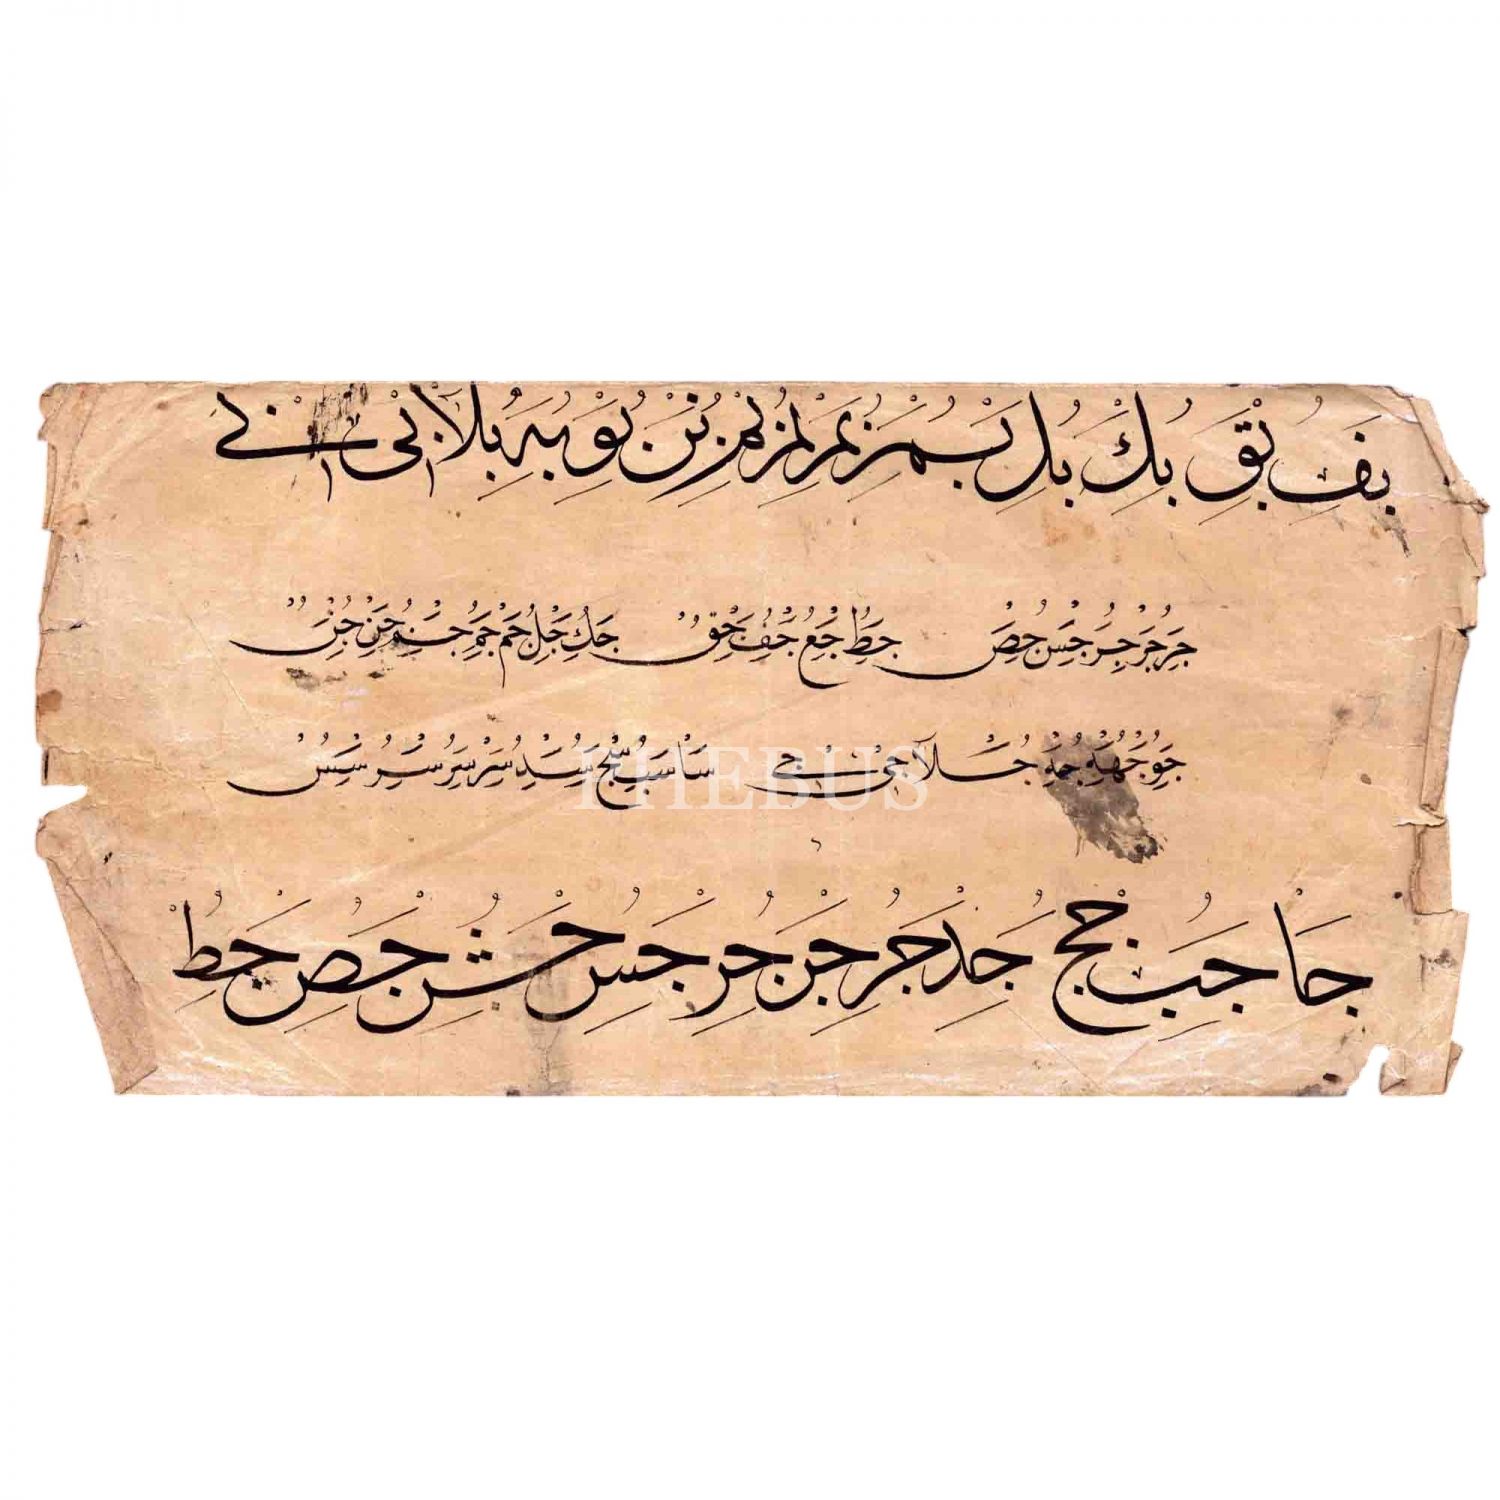 بف بق بك بل بم بن بو به بلا بى بے
جر جر جر جس جص جط جع جف جق جك جل جم جم جم جن جن
جو جه جه جلا جى جے سا سب سج سد سر سر سر سر سس
PHEBUS
جا جب جج جد جر جن جر جس جش جص جط